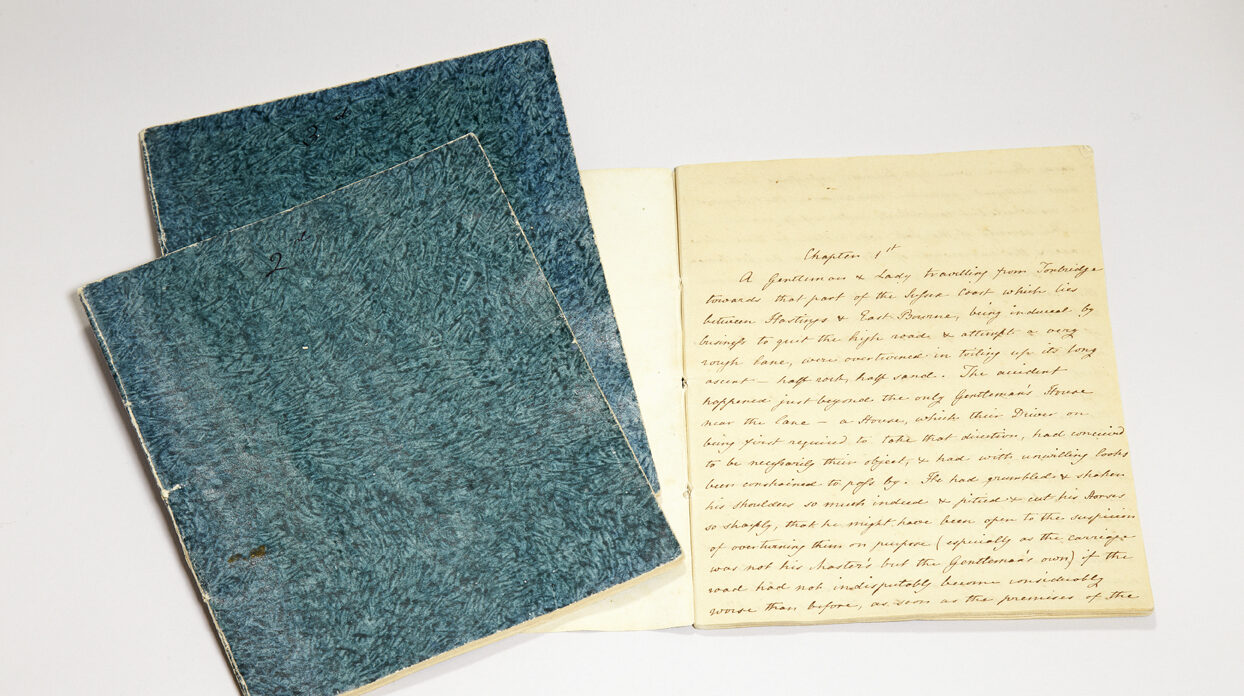 3d
2d
Chapter 1st
A Gentleman & Lady travelling from Tonbridge
towards that part of the Sussex Coast which lies
between Hastings & East Bourne, being induced by
business to quit the high road, & attempt a very
rough Lane, were overturned in toiling up its long
ascent - half rock, half sand. The accident
happened just beyond the only Gentleman's House
near the Lane - a House, which their Driver on
being first required to take that direction, had conceived
to be necessarily their object, & had with unwilling Looks
been constrained to pass by. He had grumbled & shaken
his shoulders so much indeed & pitied & cut his Horses
so sharply, that he might have been open to the suspicion
of overturning them on purpose (especially as the carriage
was not his Master's but the Gentleman's own) if the
road had not indisputably become considerably
worse than before, as soon as the premises of the